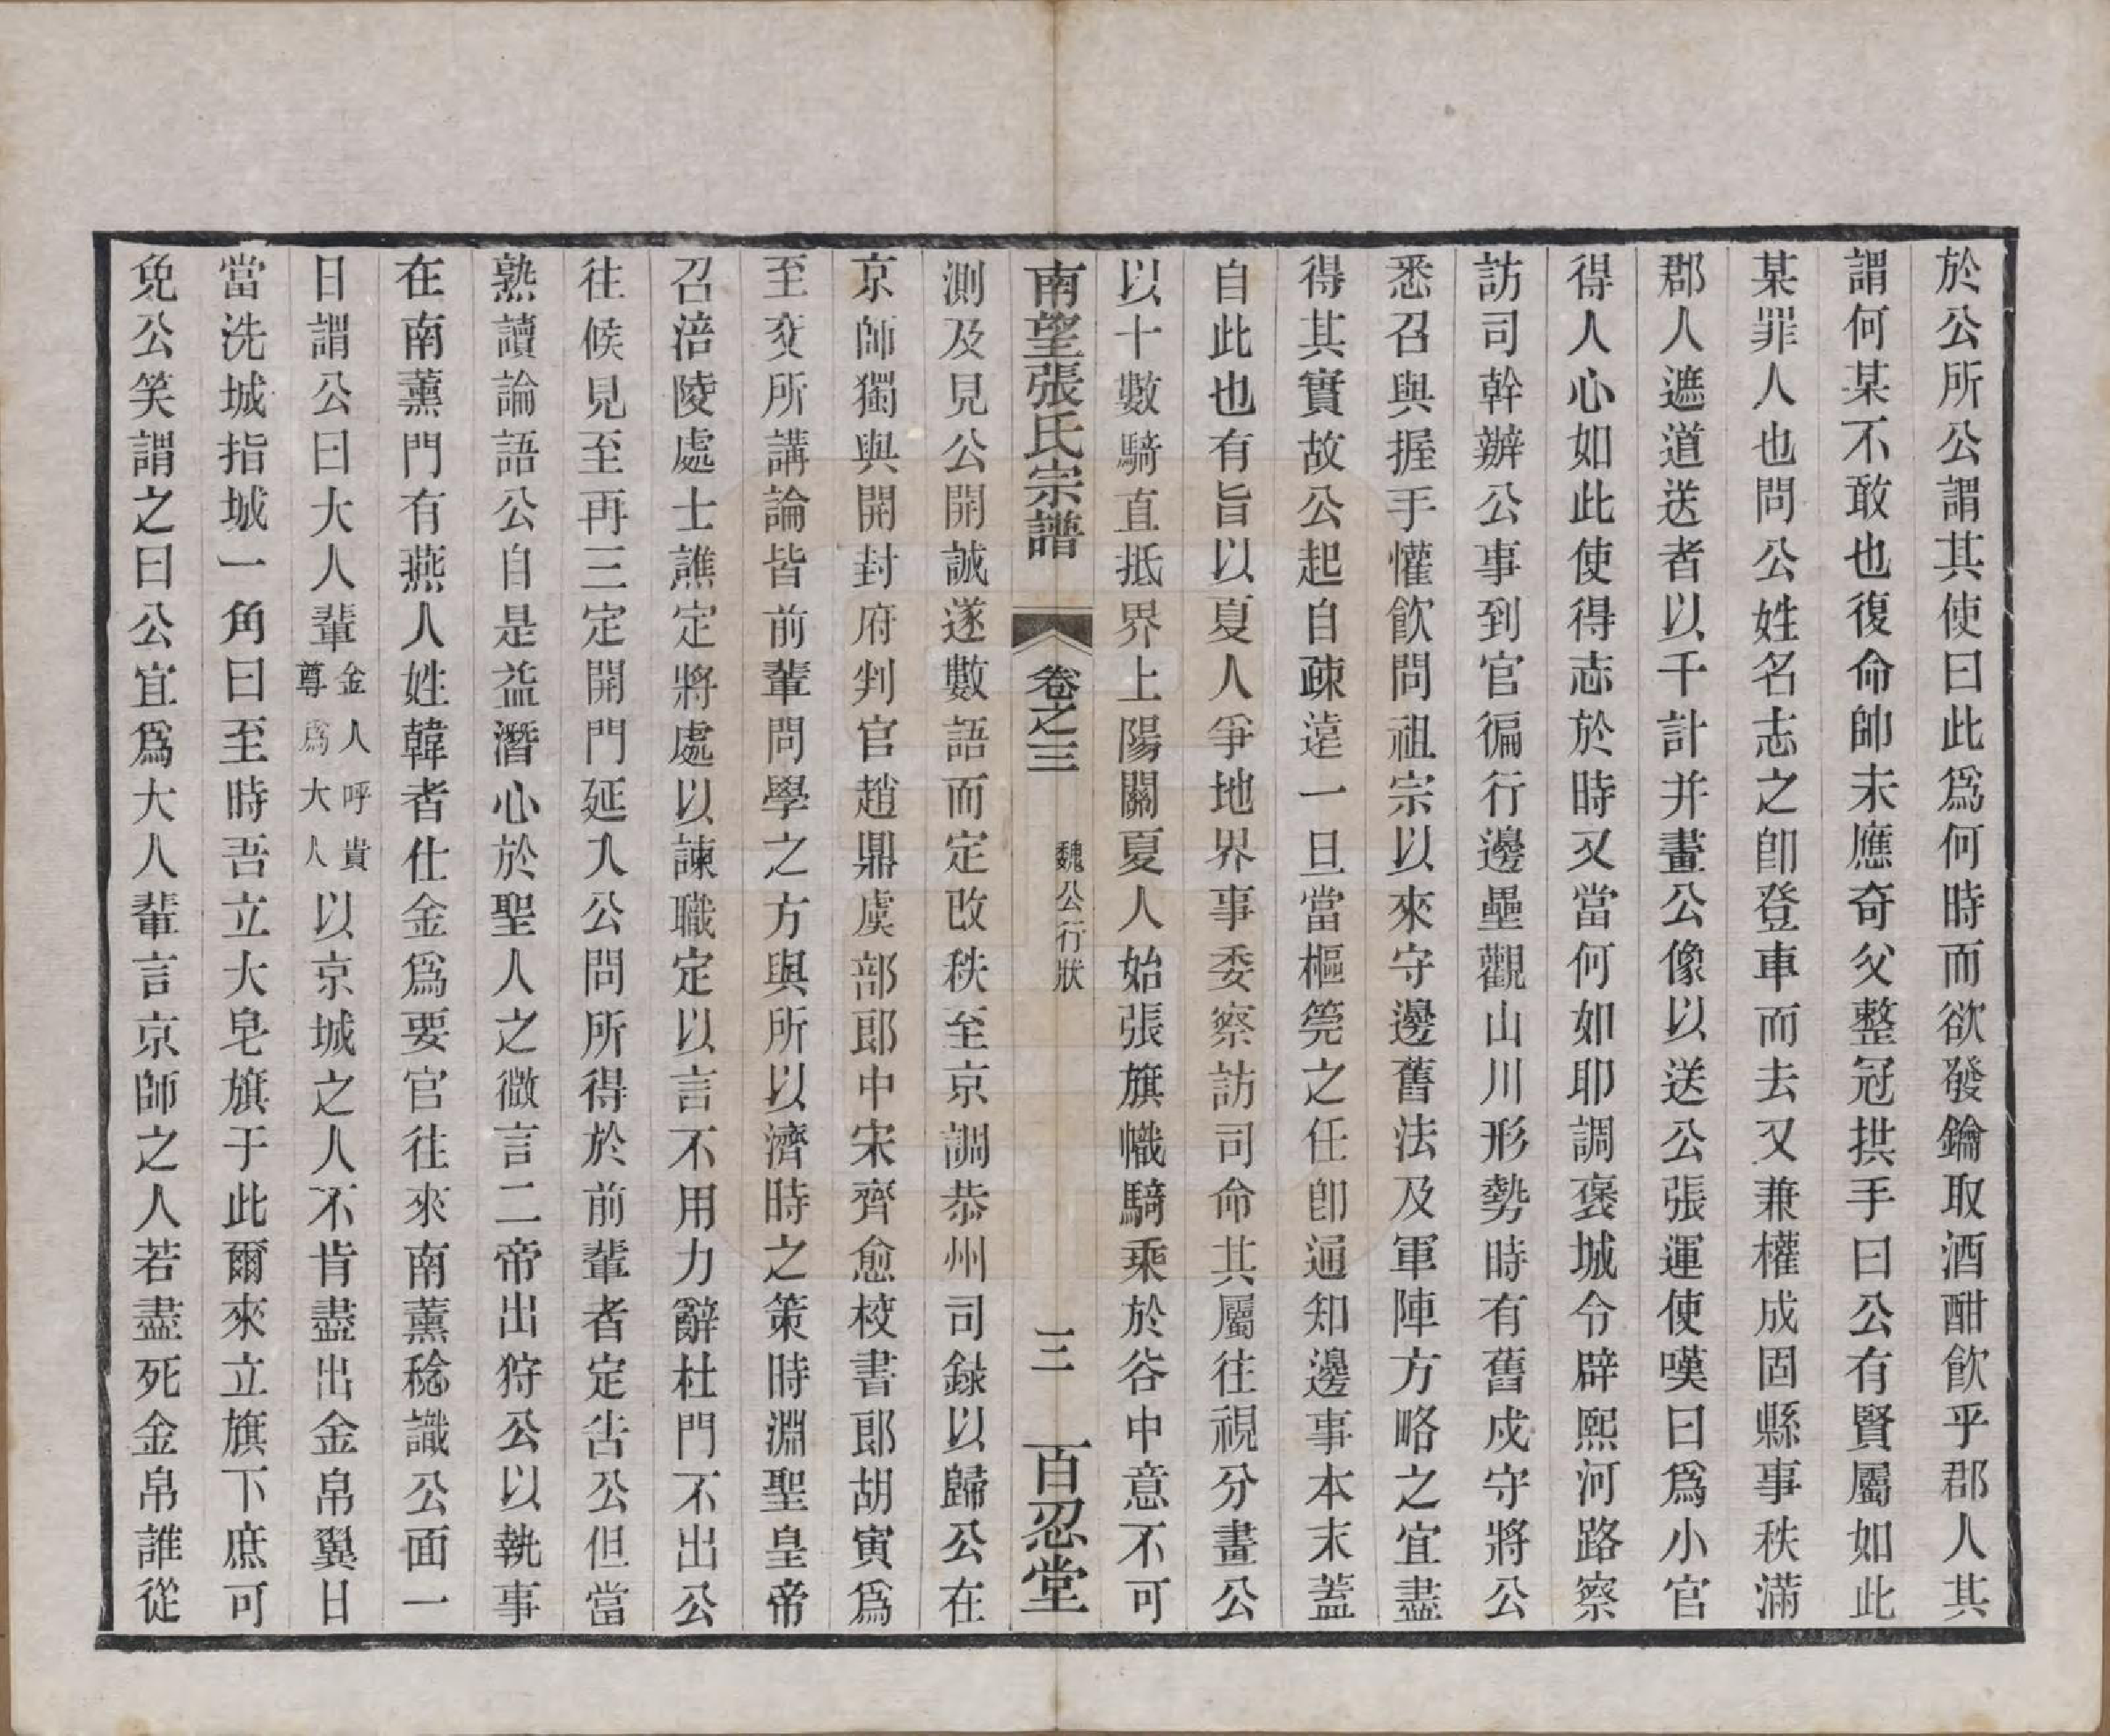 於公所公謂其使曰此爲何時而欲發鑰取酒酣飮乎郡人其
謂何某不敢也復命帥未應奇父整冠拱手曰公有賢屬如此
某罪人也問公姓名志之卽登車而去又兼權成固縣事秩滿
郡人遮道送者以千計并畫公像以送公張運使嘆曰爲小官
得人心如此使得志於時又當何如耶調褒城令辟熙河路察
訪司幹辦公事到官徧行邊壘觀山川形勢時有舊戍守將公
悉召與握手懽飮問祖宗以來守邊舊法及軍陣方略之宜盡
得其實故公起自疎遠一旦當樞筦之任卽通知邊事本末蓋
自此也有旨以夏人爭地界事委察訪司命其屬往視分畫公
以十數騎直抵界上陽關夏人始張旗幟騎乘於谷中意不可
南望張氏宗譜 卷之三 魏公行狀 三 百忍堂
測及見公開誠遂數語而定改秩至京調恭州司錄以歸公在
京師獨與開封府判官趙鼎虞部郎中宋齊愈校書郎胡寅爲
至交所講論皆前輩問學之方與所以濟時之策時淵聖皇帝
召涪陵處士譙定將處以諫職定以言不用力辭杜門不出公
往候見至再三定開門延入公問所得於前輩者定告公但當
熟讀論語公自是益潛心於聖人之微言二帝出狩公以執事
在南薰門有燕人姓韓者仕金爲要官往來南薰稔識公面一
日謂公曰大人輩金人呼貴尊爲大人以京城之人不肯盡出金帛翼日
當洗城指城一角曰至時吾立大皂旗于此爾來立旗下庶可
免公笑謂之曰公宜爲大人輩言京師之人若盡死金帛誰從